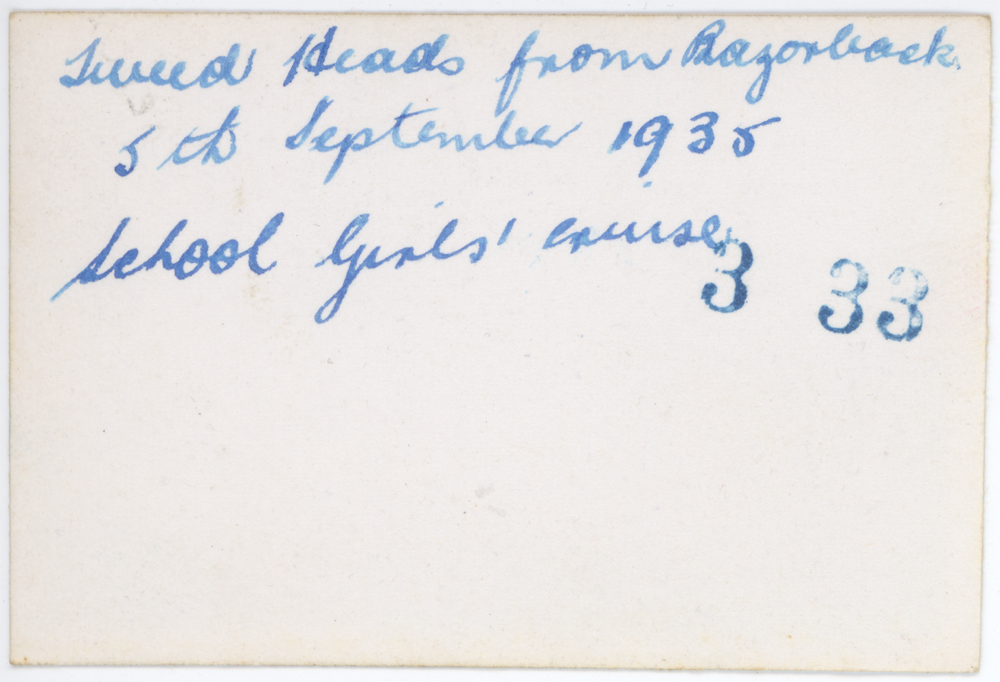 Tweed Heads from Razorback.
5th September 1935
School Girls' cruise
3 33